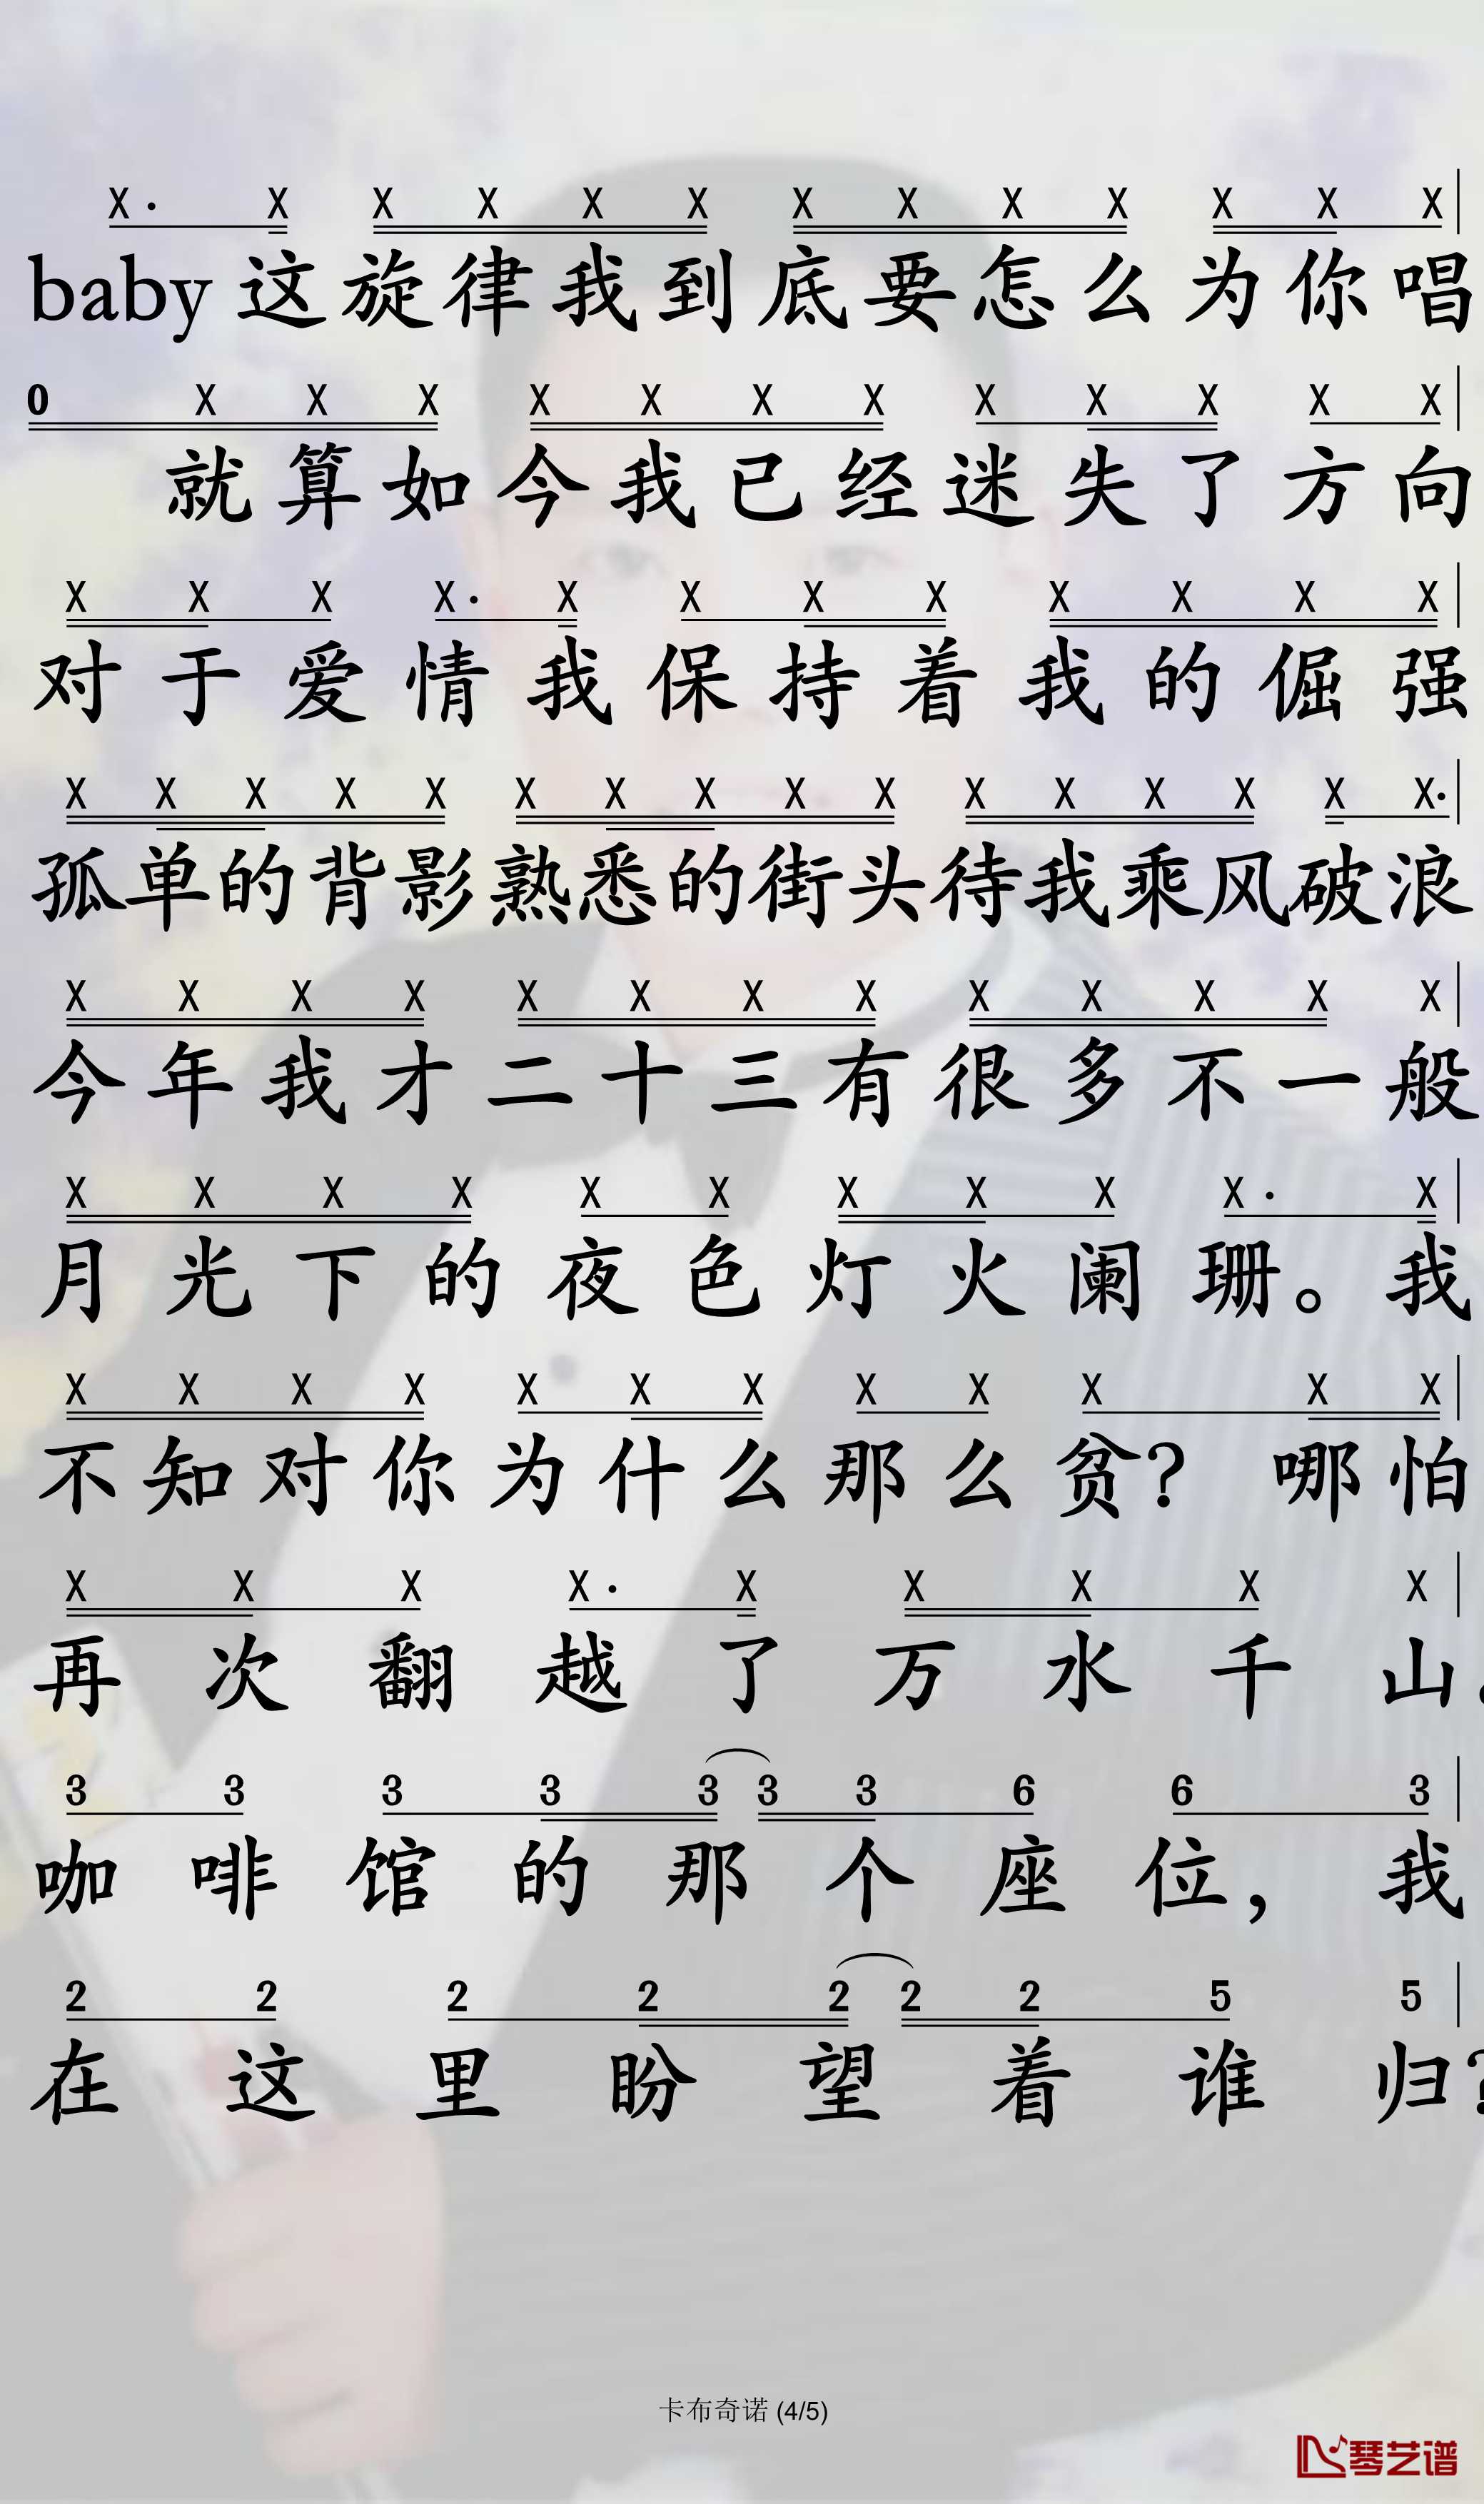 X· X X X X X X X X X X X X
baby 这旋律我到底要怎么为你唱
0 X X X X X X X X X X X X
就算如今我已经迷失了方向
X X X X· X X X X X X X X
对于爱情我保持着我的倔强
X X X X X X X X X X X X X X X X·
孤单的背影熟悉的街头待我乘风破浪
X X X X X X X X X X X X X
今年我才二十三有很多不一般
X X X X X X X X X X· X
月光下的夜色灯火阑珊。我
X X X X X X X X X X X X
不知对你为什么那么贫? 哪怕
X X X X· X X X X X
再次翻越了万水千山。
3 3 3 3 3 3 3 6 6 3
咖啡馆的那个座位, 我
2 2 2 2 2 2 2 5 5
在这里盼望着谁归?
卡布奇诺 (4/5)
琴艺谱